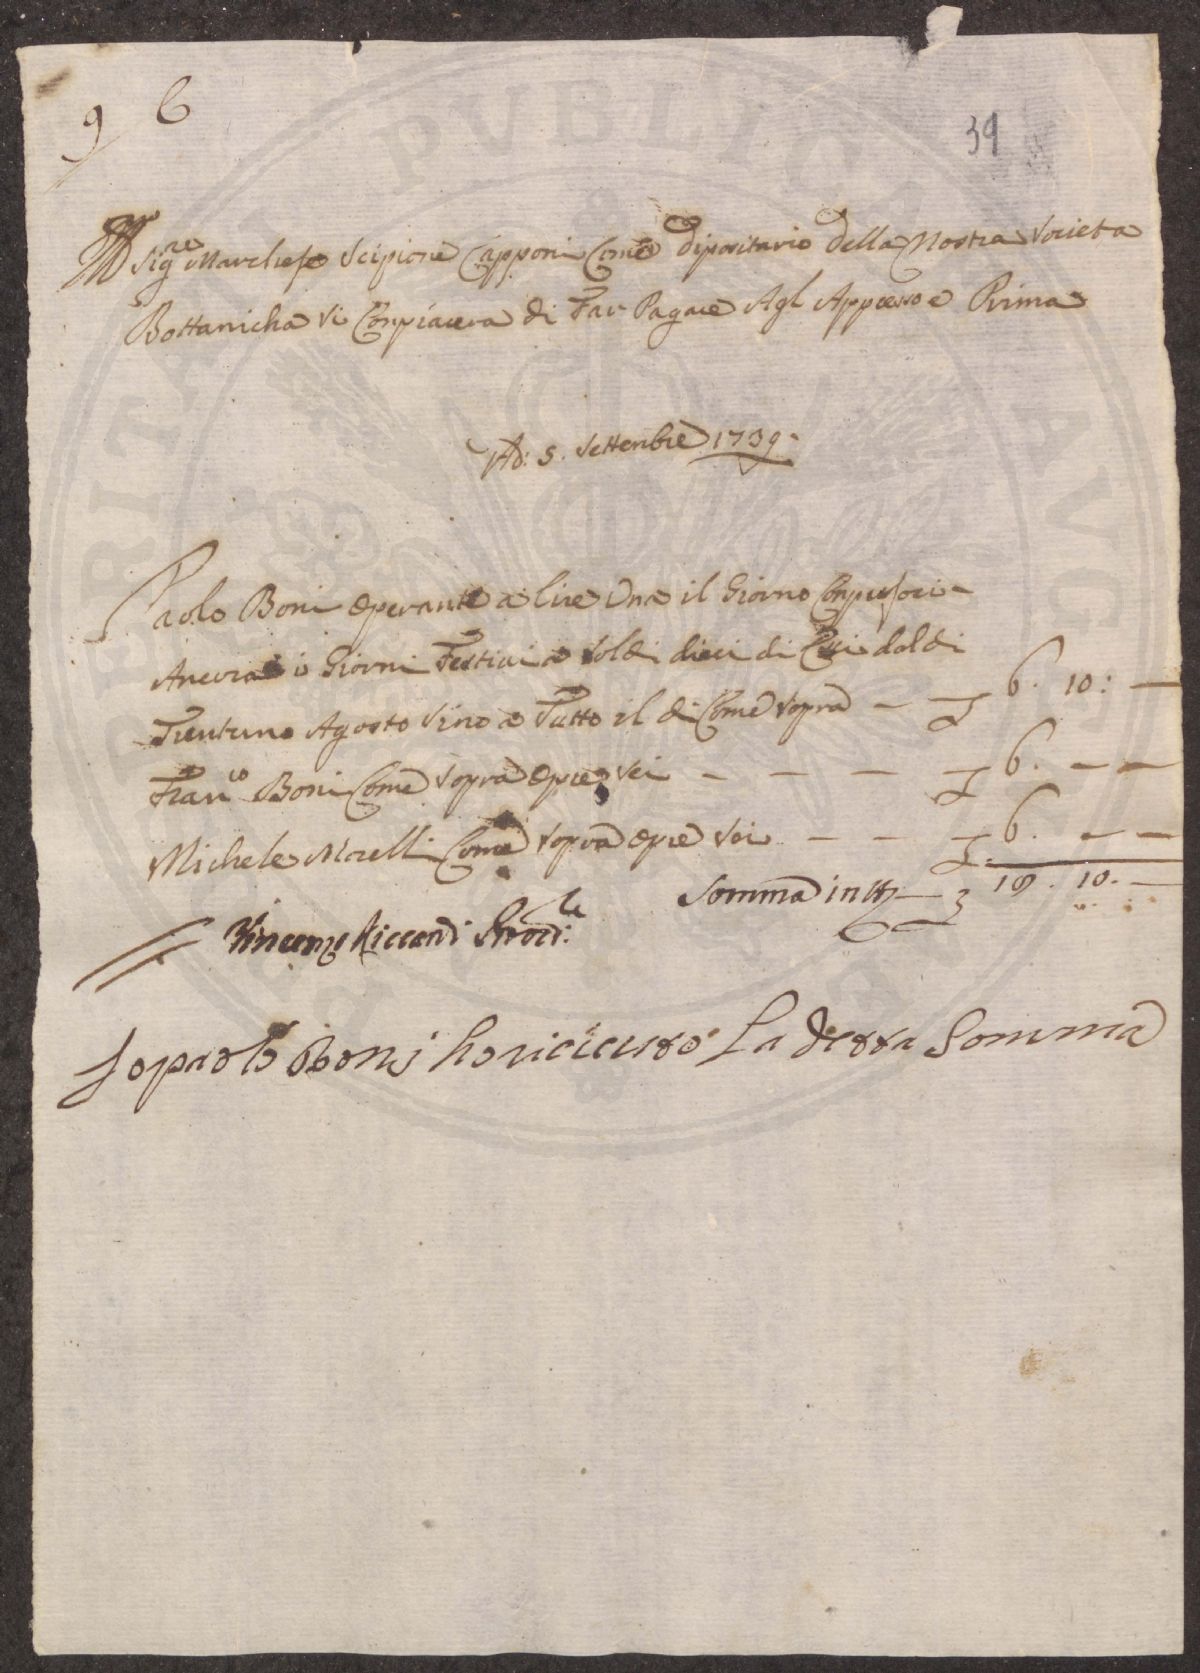 9 6
39
Ill.mo Sig.re Marchese Scipione Capponi Come Dipositario della Nostra Societa
Bottanicha Si Conpiacera di Far Pagare Agl Appresso e Prima
Ad: 5. Settenbre 1739.
Paolo Boni Operante a lire Una il Giorno
Ancora i Giorni Festivi a Soldi dieci di
Trentuno Agosto Sino a Tutto il di Come Sopra — £ 6. 10: —
Fran.co Boni Come Sopra Opre Sei — — — £ 6. — —
Michele Morelli Come Sopra Opre Sei — — £ 6. — —
Somma in tt.o — £ 18. 10. —
Vincenzo Riccardi
Io paolo Boni ho riceuto La detta Somma
PVBLICA